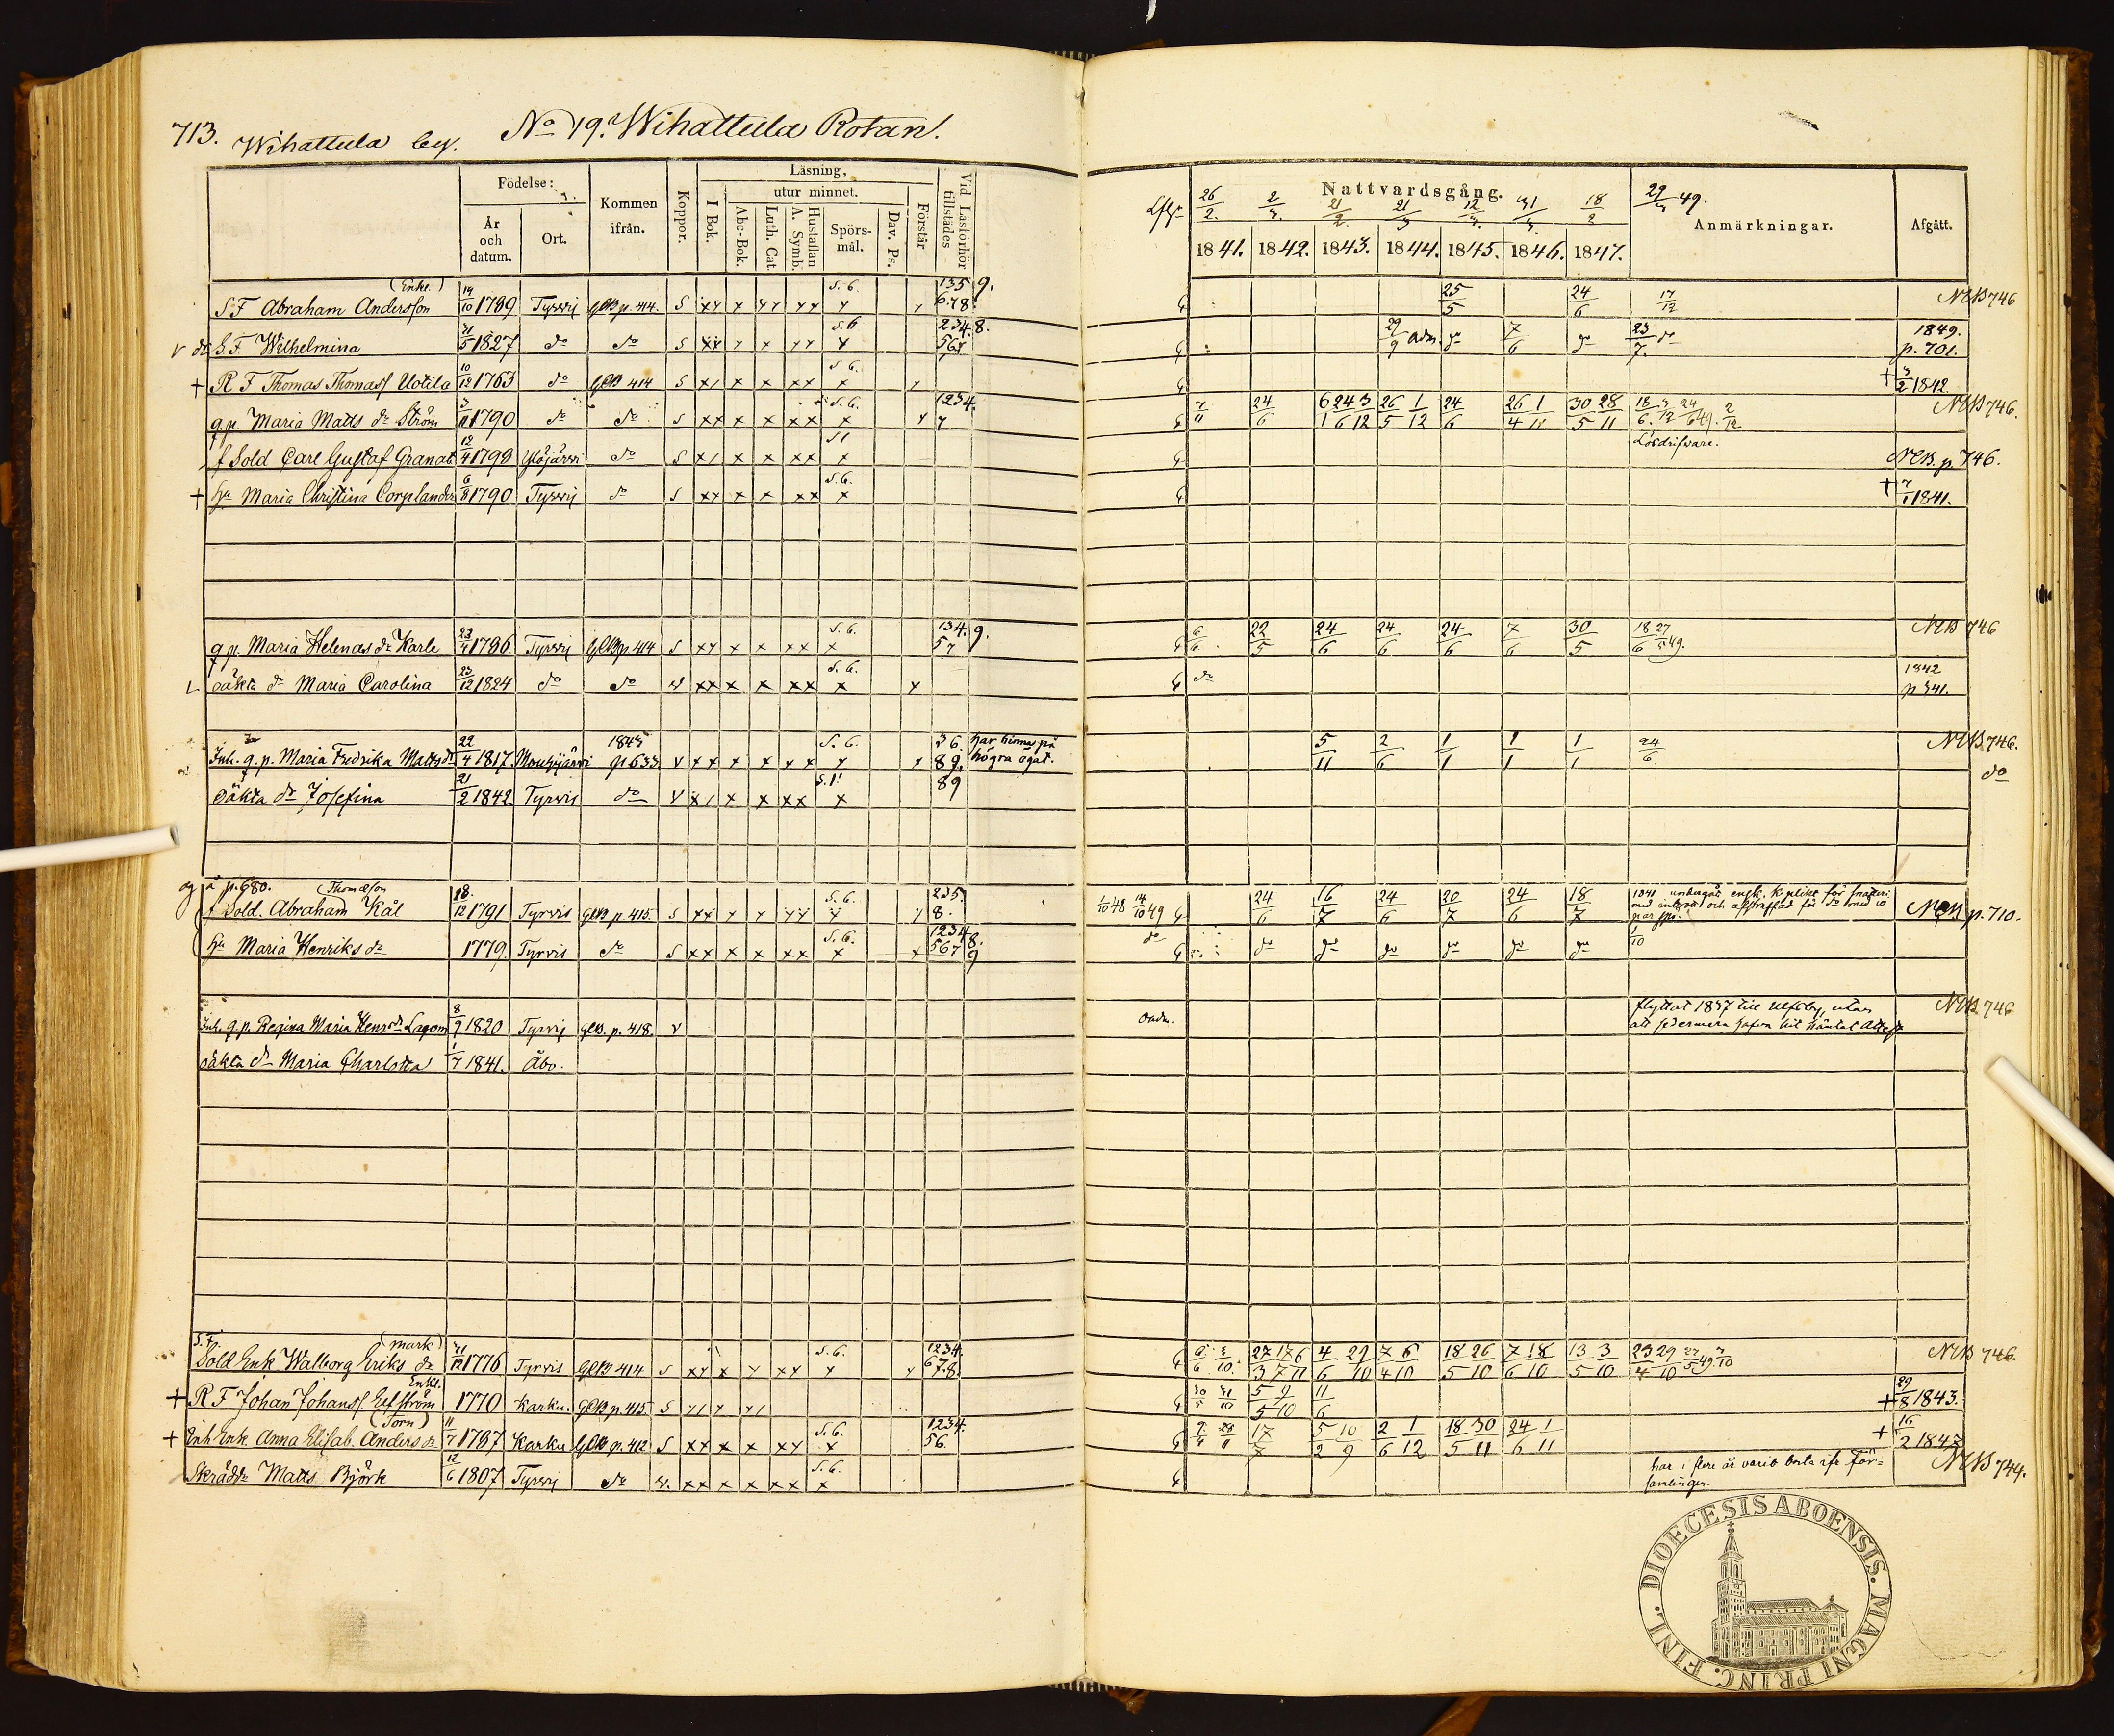 713. Wihattula by. No 19. Wihattula Rotan.
Födelse: År och datum. Ort. Kommen ifrån. Koppor. Läsning, I Bok. utur minnet. Abc-Bok. Luth. Cat. Hustaflan A. Symb. Spörsmål. Dav. Ps. Förstår Vid Läsförhör tillstädes
26/2 2/3 21/2 21/3 12/3 18/3 29/3 49.
Nattvardsgång. Anmärkningar. Afgått.
1841. 1842. 1843. 1844. 1845. 1846. 1847.
(Enkl.)
S F Abraham Andersson 19/10 1789 Tyrvis GCB p. 414. S S. 6. 135 9. 678. 25/5 24/6 17/12 NCB 746
v dr S. F. Wilhelmina 31/5 1827 do do S S. 6 234. 8. 567 29/9 adm. do 7/6 do 23/7 do 1849. p. 701.
+ R F Thomas Thomass Uotila 10/12 1763 do GCB 414 S S 6. + 3/2 1842
q.p. Maria Matts dr Ström 3/11 1790 do do S S. 6. 1234. 7 7/11 24/6 6 24 3 1 6 12 26 1 5 12 24/6 26 1 4 11 30 28 5 11 NCB 746.
f Sold Carl Gustaf Granat 12/4 1799 Ylöjärvi do S S1 Lösdrifvare. NCB. p. 746.
+ hu Maria Christina Corplander 6/8 1790 Tyrvis do S S. 6. + 7/1 1841.
q.p. Maria Helenas dr Karle 23/4 1796 Tyrvis GCB p 414 S S. 6. 134. 9. 57 6/6 22/5 24/6 24/6 24/6 7/6 30/5 18 27 6 5 49. NCB 746
oäkta dr Maria Carolina 23/12 1824 do do S. 6. do 1842 p 341.
Inh. q.p. Maria Fredrika Matts dr 22/4 1817. Mouhijärvi 1843 p 633 v S. 6. 36. 89. har hinna på högra ögat. 5/11 2/6 1/1 1/1 1/1 24/6 NCB. 746.
oäkta dr Josefina 21/2 1842 Tyrvis do v S. 1. 89 do
å p. 680. Thomasson
f Sold. Abraham Kål 18/12 1791 Tyrvis GCB p. 415. S S. 6. 235 8. 1/10 48 14/10 49 24/6 16/7 24/6 20/7 24/6 18/7 1841 undergått enskl. k. plikt för snatteri NCB p. 710.
hu Maria Henriks dr 1779. Tyrvis do S S. 6. 1234 8. 567 9 do do do do do do do 1/10
Inh. q.p. Regina Maria Henrs dr Lagom 8/9 1820 Tyrvis GCB. p. 418. v oadm. flyttat 1837 till Ulfsby, utan NCB 746
att sedermera hafva hit häntat Attest
oäkta dr Maria Charlotta 1/7 1841. Åbo.
S. F. (Mark)
Sold Enk Walborg Eriks dr 31/12 1776 Tyrvis GCB 414 S S. 6. 1234. 678. 27 17 6 3 7 11 4 29 6 10 7 6 4 10 18 26 5 10 7 18 6 10 13 3 5 10 23 29 4 10 NCB 746.
Enkl.
+ R F Johan Johanss Elfström 1770 Karku. GCB p. 415. S 30/5 31/10 5 9 5 10 11/6 + 29/8 1843.
(Torn)
+ Inh Enk. Anna Elisab. Anders dr 11/7 1787 Karku GCB p. 412 S S. 6. 1234. 56. 17/7 5 10 2 9 2 1 6 12 18 30 5 11 24 1 6 11 + 16/2 1847
Skrädd. Matts Björk 12/6 1807 Tyrvis do v. S. 6. har i flere år varit borta ifr. församlingen. NCB 744.
DIOECESIS ABOENSIS. MAGNI PRINC. FINL.